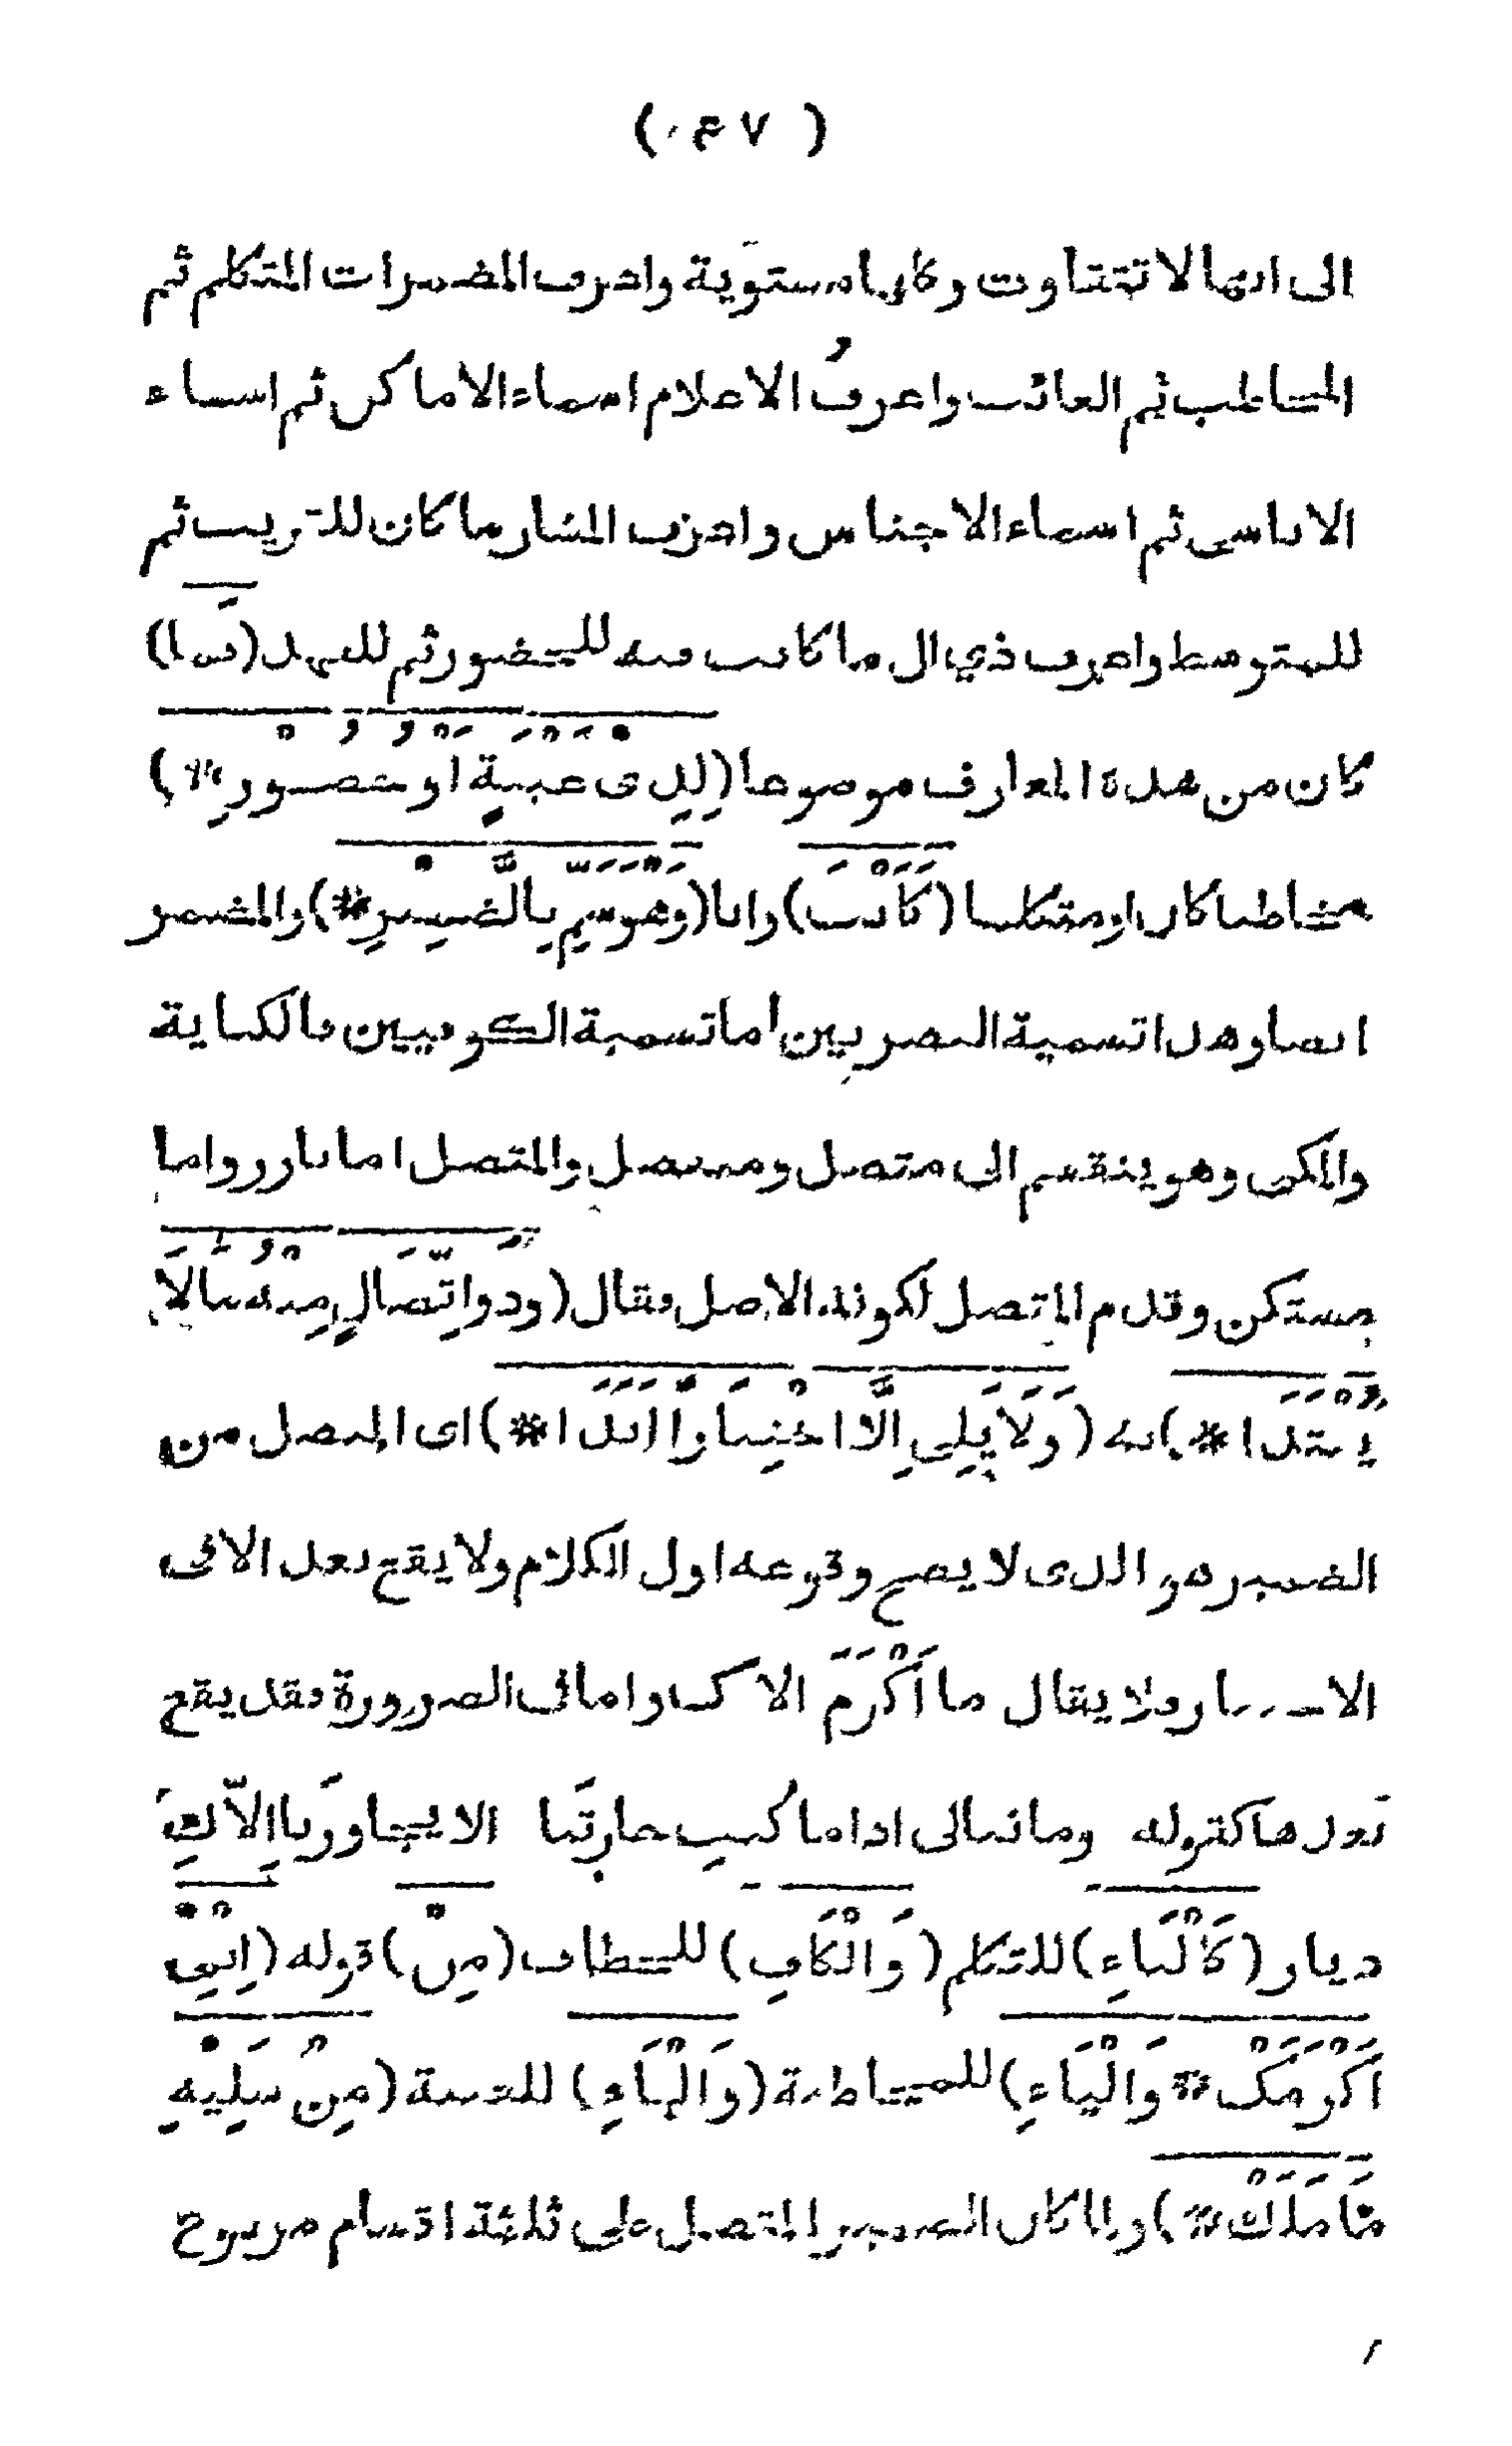 ( ٤٧ )
الى انها لا تتفاوت وكلها مستوية واعرف المضمرات المتكلم ثم
المخاطب ثم الغائب واعرفُ الاعلام اسماء الاماكن ثم اسماء
الاناسى ثم اسماء الاجناس واعرف المشار ما كان للقريب ثم
للمتوسط واعرف ذي ال ما كانت فيه للحضور ثم للعهد (فَما)
كان من هذه المعارف موضوعا (لِذِى غَيْبَةٍ اَوْ حُضُورِ *)
مخاطبا كان او متكلما (كَاَنْتَ) وانا (وَهْوَ سَمِّ بِالضَّمِيْرِ *) والمضمر
ايضا وهذا تسمية البصريين اما تسمية الكوفيين فالكناية
والمكنى وهو ينقسم الى متصل ومنفصل والمتصل اما بارز واما
مستكن وقدم المتصل لكونه الاصل فقال (وَذو اتِّصَالٍ مِنْهُ مَا لاَ
يُبْتَدَا *) به (وَلَا يَلِى اِلَّا اخْتِيَاراً اَبَدَا *) اى المتصل من
الضمير هو الذى لا يصح وقوعه اول الكلام ولا يقع بعد الا فى
الاختيار فلا يقال ما اَكْرَمَ الاك واما فى الضرورة فقد يقع
بعدها كقوله وما نبالى اذا ما كنت جارتَنا الا يجاورَنا اِلاَّكِ
ديار (كَالْيَاءِ) للتكلم (وَالْكَافِ) للخطاب (مِنْ) قوله (اِبْنِىْ
اَكْرَمَكْ * وَالْيَاءِ) للمخاطبة (وَالْهَاءِ) للغيبة (مِنْ سَلِيْهِ
مَا مَلَكْ *) ولما كان الضمير المتصل على ثلثة اقسام مرفوع